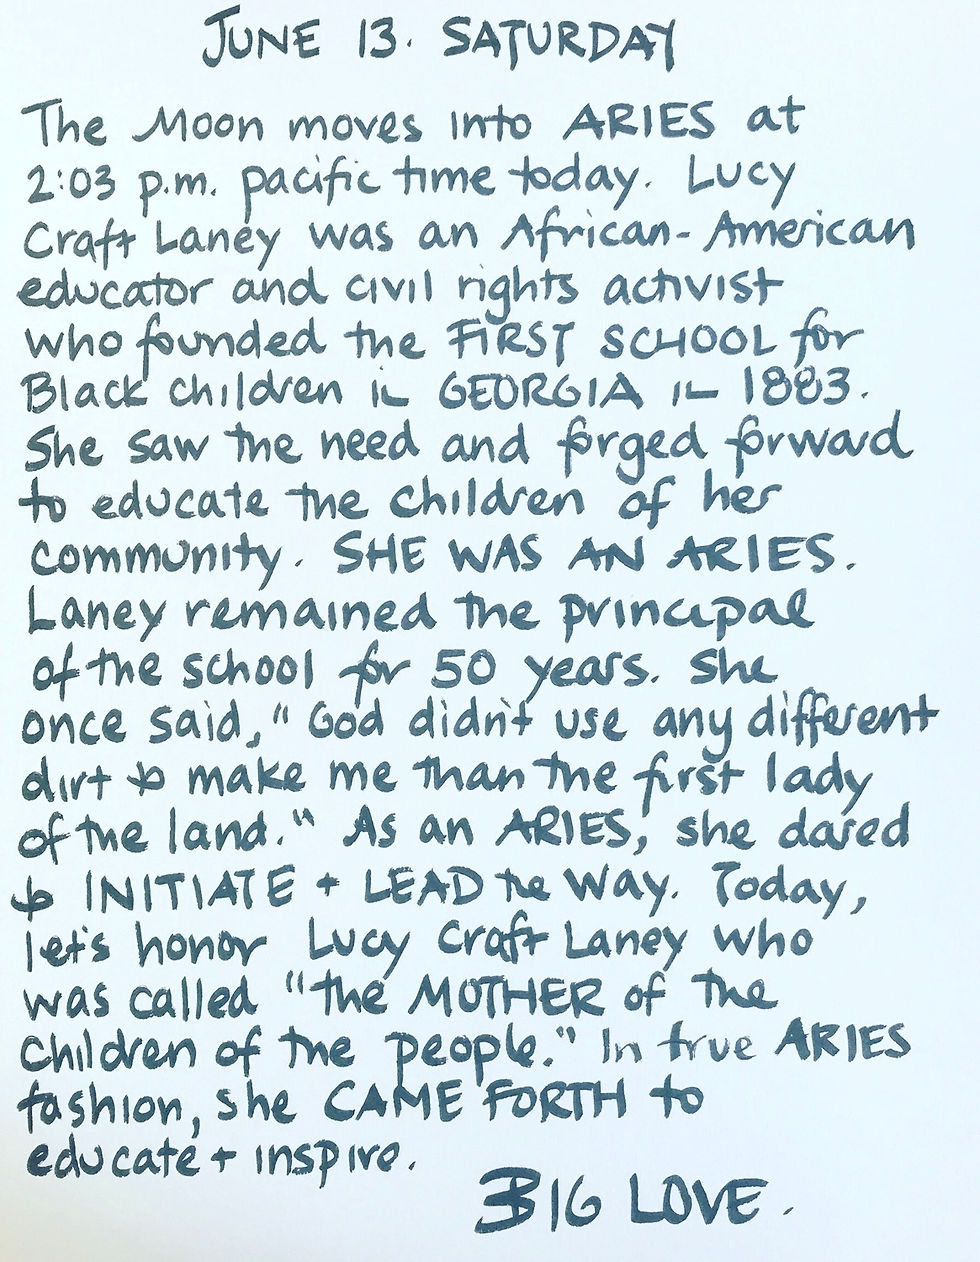 JUNE 13. SATURDAY
The Moon moves into ARIES at
2:03 p.m. pacific time today. Lucy
Craft Laney was an African-American
educator and civil rights activist
who founded the FIRST SCHOOL for
Black children in GEORGIA in 1883.
She saw the need and forged forward
to educate the children of her
community. SHE WAS AN ARIES.
Laney remained the principal
of the school for 50 years. She
once said, "God didn't use any different
dirt to make me than the first lady
of the land." As an ARIES, she dared
to INITIATE + LEAD the way. Today,
let's honor Lucy Craft Laney who
was called "the MOTHER of the
children of the people." In true ARIES
fashion, she CAME FORTH to
educate + inspire.
BIG LOVE.